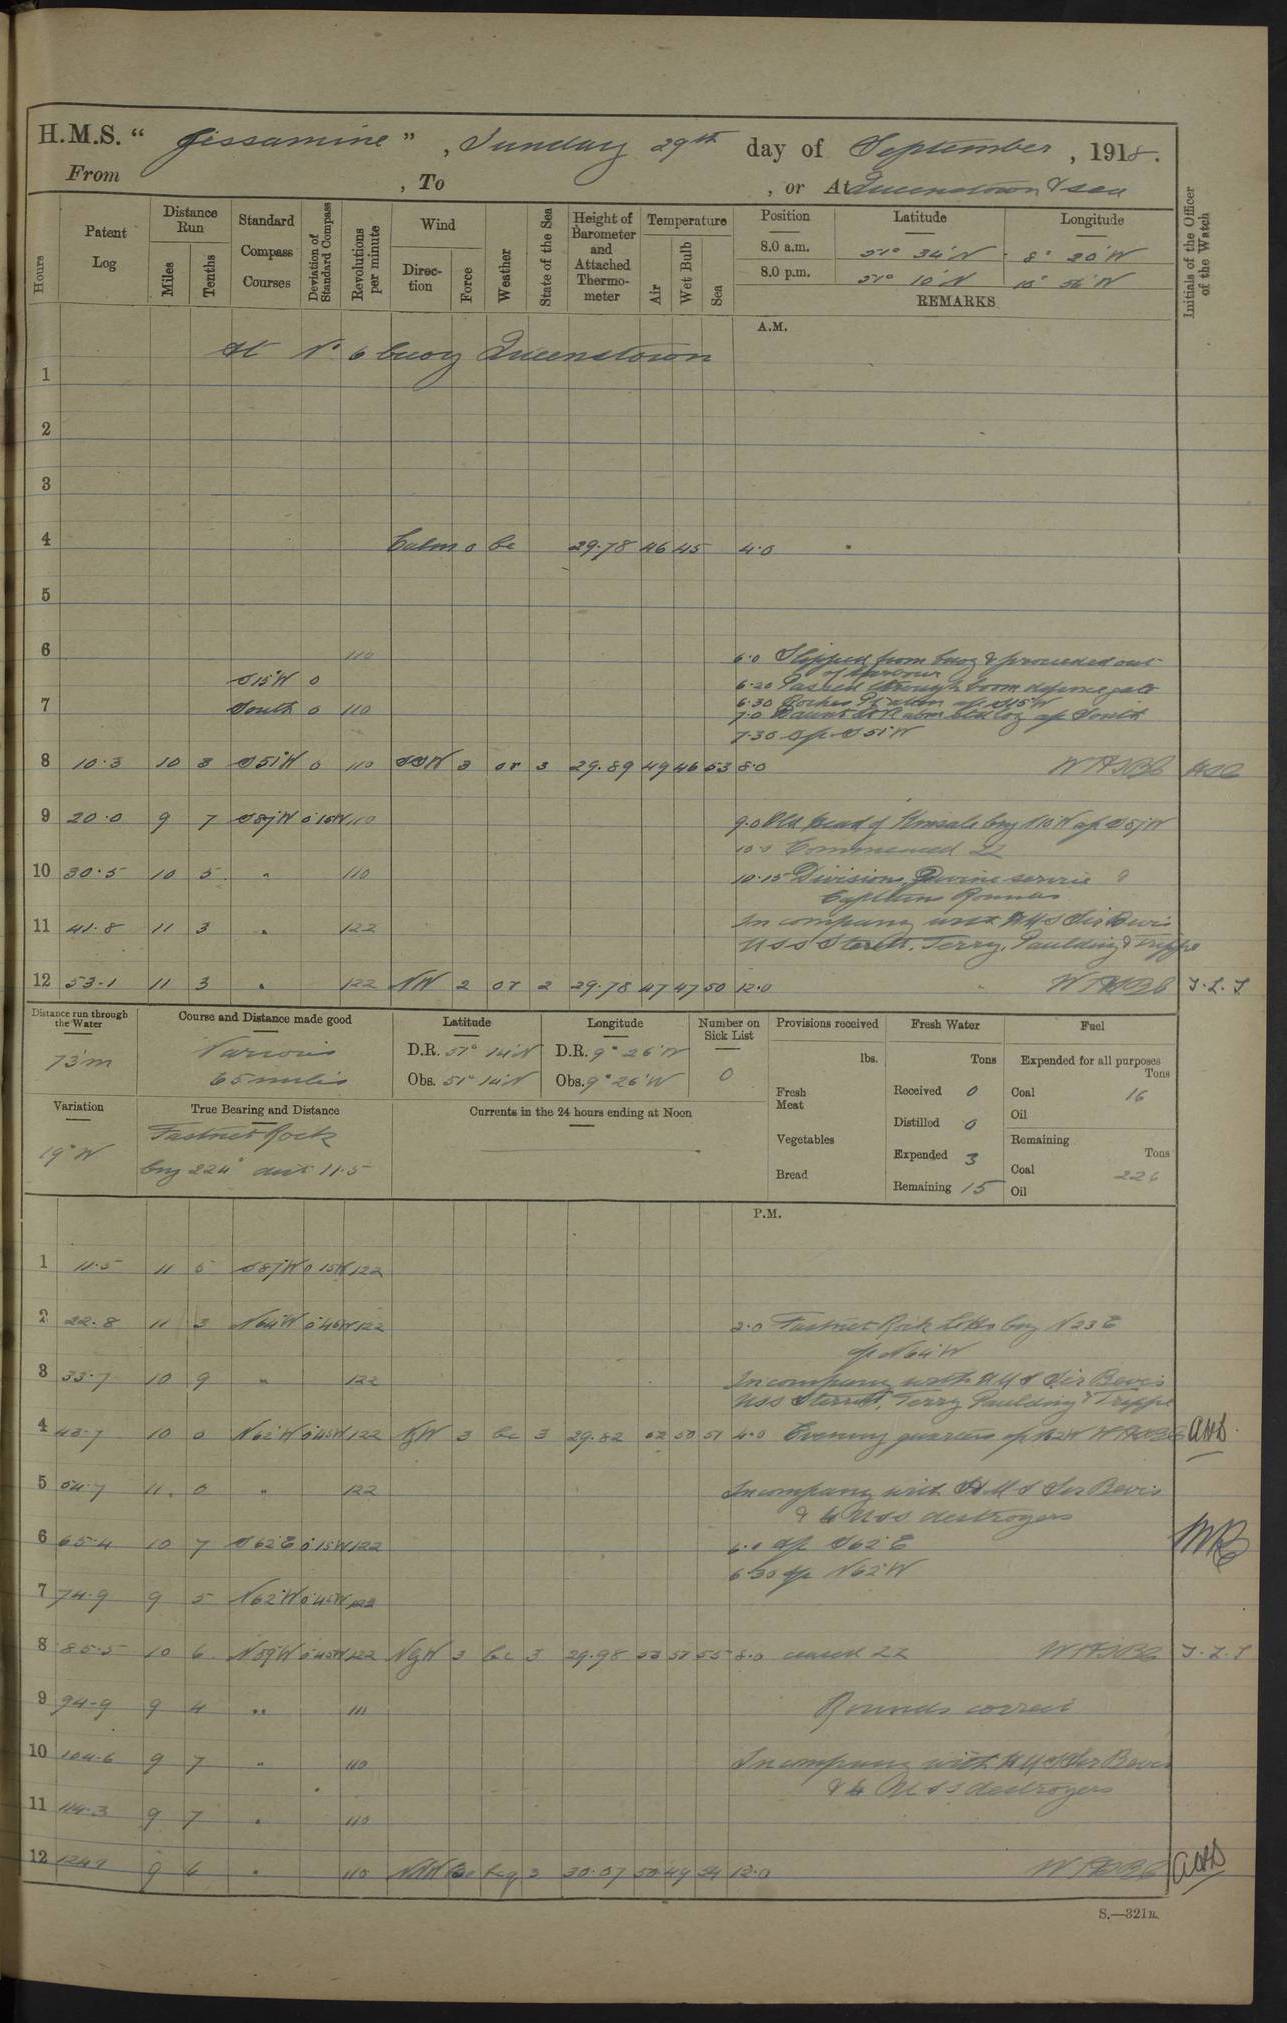 H.M.S. "Jessamine", Sunday 29th day of September, 1918.
From , To , or At Queenstown & sea
Hours
Patent Log
Distance Run
Miles
Tenths
Standard Compass Courses
Deviation of Standard Compass
Revolutions per minute
Wind
Direction
Force
Weather
State of the Sea
Height of Barometer and Attached Thermometer
Temperature
Air
Wet Bulb
Sea
Position Latitude Longitude
8.0 a.m. 51° 34' N 8° 20' W
8.0 p.m. 51° 10' N 10° 56' W
REMARKS
Initials of the Officer of the Watch
A.M.
At No 6 buoy Queenstown
1
2
3
4 Calm 0 bc 29.78 46 45 4.0
5
6 110 6.0 Slipped from buoy & proceeded out of harbour
S15°W 0 6.20 Passed through boom defence gate
6.30
7 South 0 110 7.0 Daunt Lt abm a/c South
7.30 a/c S51°W
8 10.3 10 3 S51°W 0 110 SSW 3 or 3 29.89 49 46 53 8.0
9 20.0 9 7 S87W 0°15W 110 9.0 Old Head of Kinsale brg N10W a/c S87W
10.0 Commenced ZZ
10 30.5 10 5 " 110 10.15 Divisions, Divine service &
Captains Rounds
11 41.8 11 3 " 122 In company with HMS Sir Bevis
USS Sterett, Terry, Paulding & Trippe
12 53.1 11 3 " 122 NW 2 or 2 29.78 47 47 50 12.0 J.L.J.
Distance run through the Water
73'm
Course and Distance made good
Various
65 miles
Latitude
D.R. 51° 14' N
Obs. 51° 14' N
Longitude
D.R. 9° 26' W
Obs. 9° 26' W
Number on Sick List
0
Provisions received
lbs.
Fresh Meat
Vegetables
Bread
Fresh Water
Tons
Received 0
Distilled 0
Expended 3
Remaining 15
Fuel
Expended for all purposes
Tons
Coal 16
Oil
Remaining
Tons
Coal 226
Oil
Variation
19°W
True Bearing and Distance
Fastnet Rock
brg 224° dist 11.5
Currents in the 24 hours ending at Noon
P.M.
1 11.5 11 5 S87°W 0 15W 122
2 22.8 11 3 N64°W 0°45W 122 2.0 Fastnet Rock brg N23E
a/c N64°W
3 33.7 10 9 " 122 In company with HMS Sir Bevis
USS Sterett, Terry Paulding & Trippe
4 43.7 10 0 N62°W 0°45W 122 NW 3 bc 3 29.82 52 50 51 4.0 Evening quarters a/c N62W
5 54.7 11 0 " 122 In company with HMS Sir Bevis
& 4 USS destroyers
6 65.4 10 7 S62°E 0°15W 122 6.0 a/c S62°E
6.30 a/c N62°W
7 74.9 9 5 N62°W 0°45W 122
8 85.5 10 6 N59°W 0°45W 122 NbW 3 bc 3 29.98 53 51 55 8.0 ceased ZZ J.L.J.
9 94.9 9 4 " 111 Rounds correct
10 104.6 9 7 " 110 In company with HMS Sir Bevis
& 4 USS destroyers
11 114.3 9 7 " 110
12 124.9 9 6 " 110 NNW bcq 3 30.07 50 49 54 12.0
S.—321B.